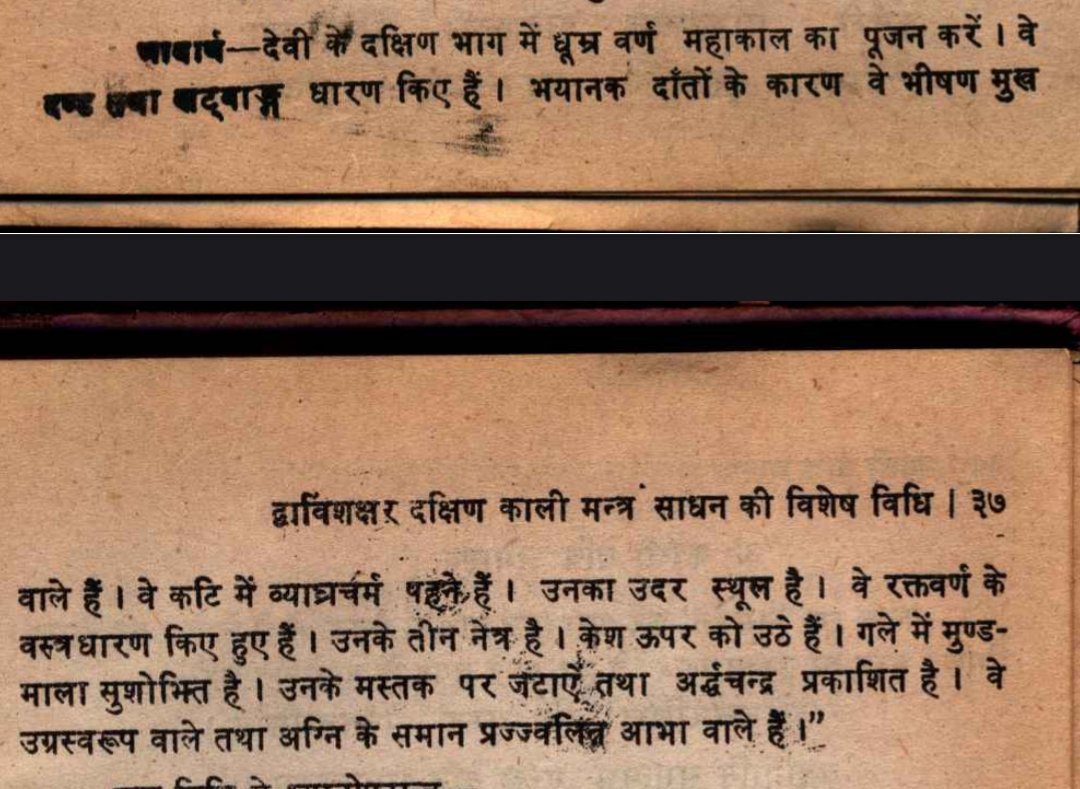 भावार्थ—देवी के दक्षिण भाग में धूम्र वर्ण महाकाल का पूजन करें । वे
दण्ड तथा खट्वाङ्ग धारण किए हैं । भयानक दाँतों के कारण वे भीषण मुख
द्वाविंशक्षर दक्षिण काली मन्त्र साधन की विशेष विधि | ३७
वाले हैं । वे कटि में व्याघ्रचर्म पहने हैं । उनका उदर स्थूल है । वे रक्तवर्ण के
वस्त्र धारण किए हुए हैं । उनके तीन नेत्र है । केश ऊपर को उठे हैं । गले में मुण्ड-
माला सुशोभित है । उनके मस्तक पर जटाएँ तथा अर्द्धचन्द्र प्रकाशित है । वे
उग्रस्वरूप वाले तथा अग्नि के समान प्रज्ज्वलित आभा वाले हैं ।”